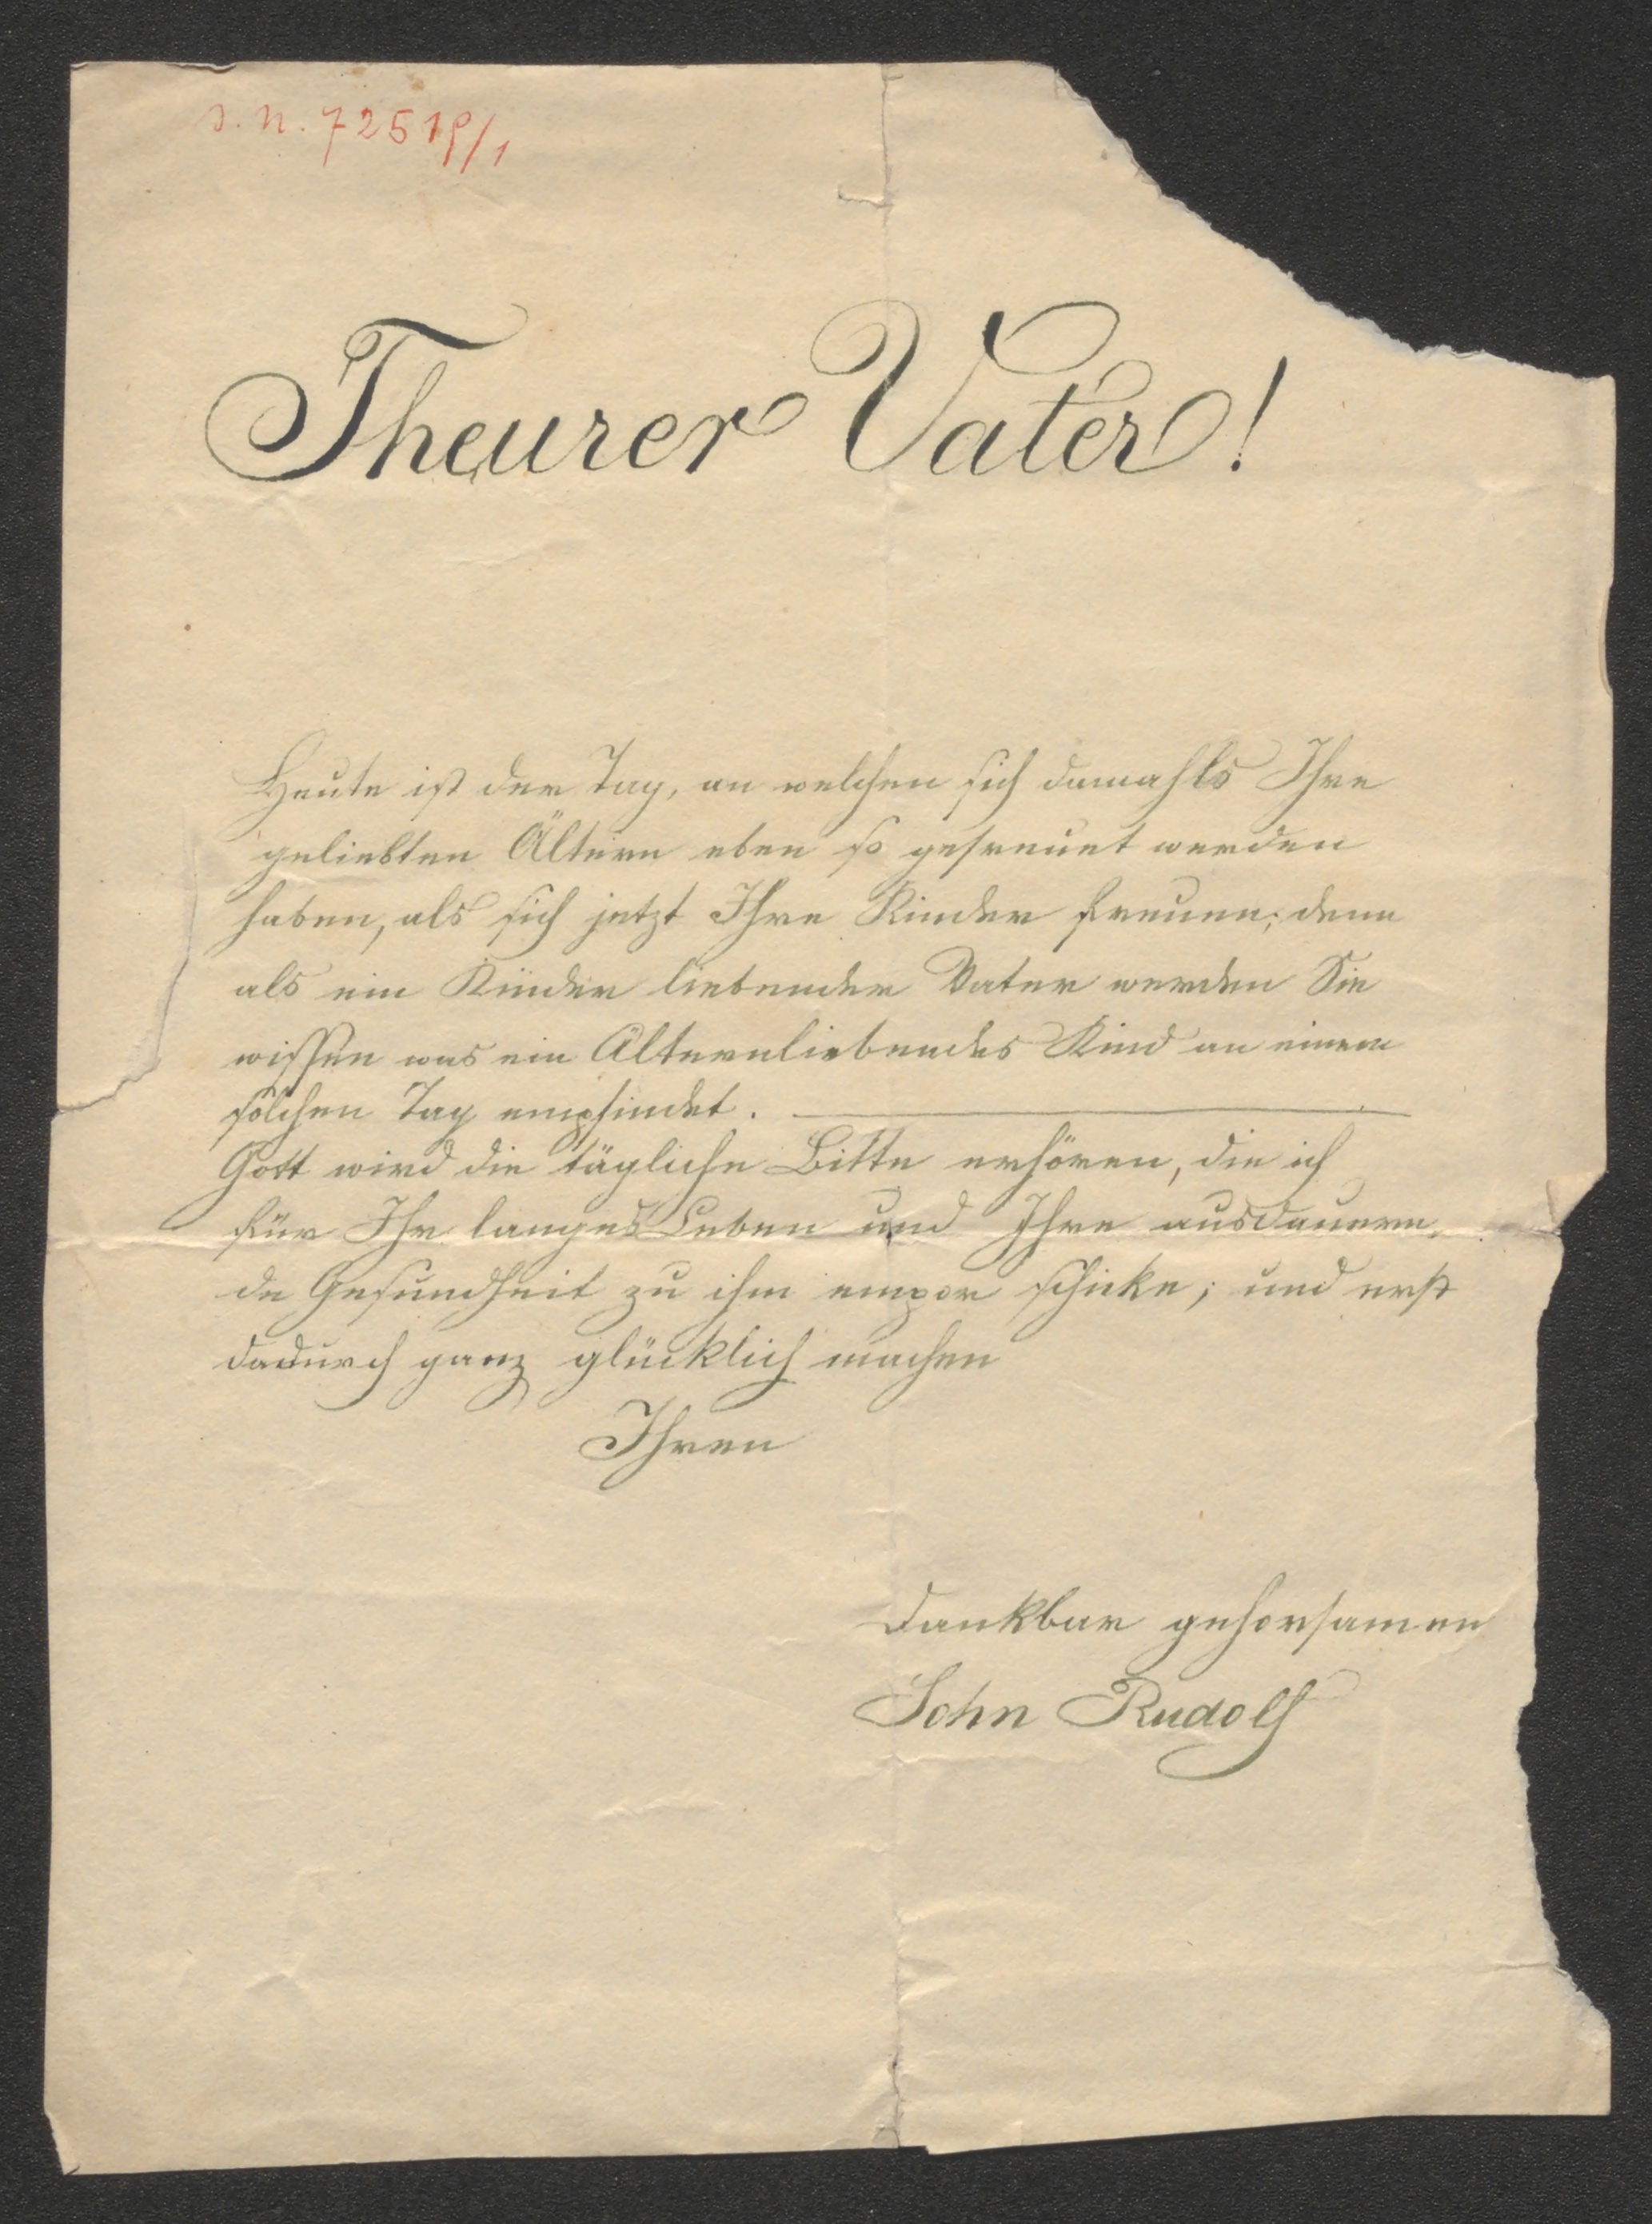 J. N. 72519/1
Theurer Vater!
Heute ist der Tag, an welchen sich damahls Ihre
geliebten Ältern eben so gefreuet werden
haben, als sich jetzt Ihre Kinder freuen; denn
als ein Kinder liebender Vater werden Sie
wissen was ein Älternliebendes Kind an einem
solchen Tag empfindet.
Gott wird die tägliche Bitte erhören, die ich
für Ihr langes Leben und Ihre ausdauern-
de Gesundheit zu ihm empor schicke; und erst
dadurch ganz glücklich machen
Ihren
dankbar gehorsamen
Sohn Rudolf